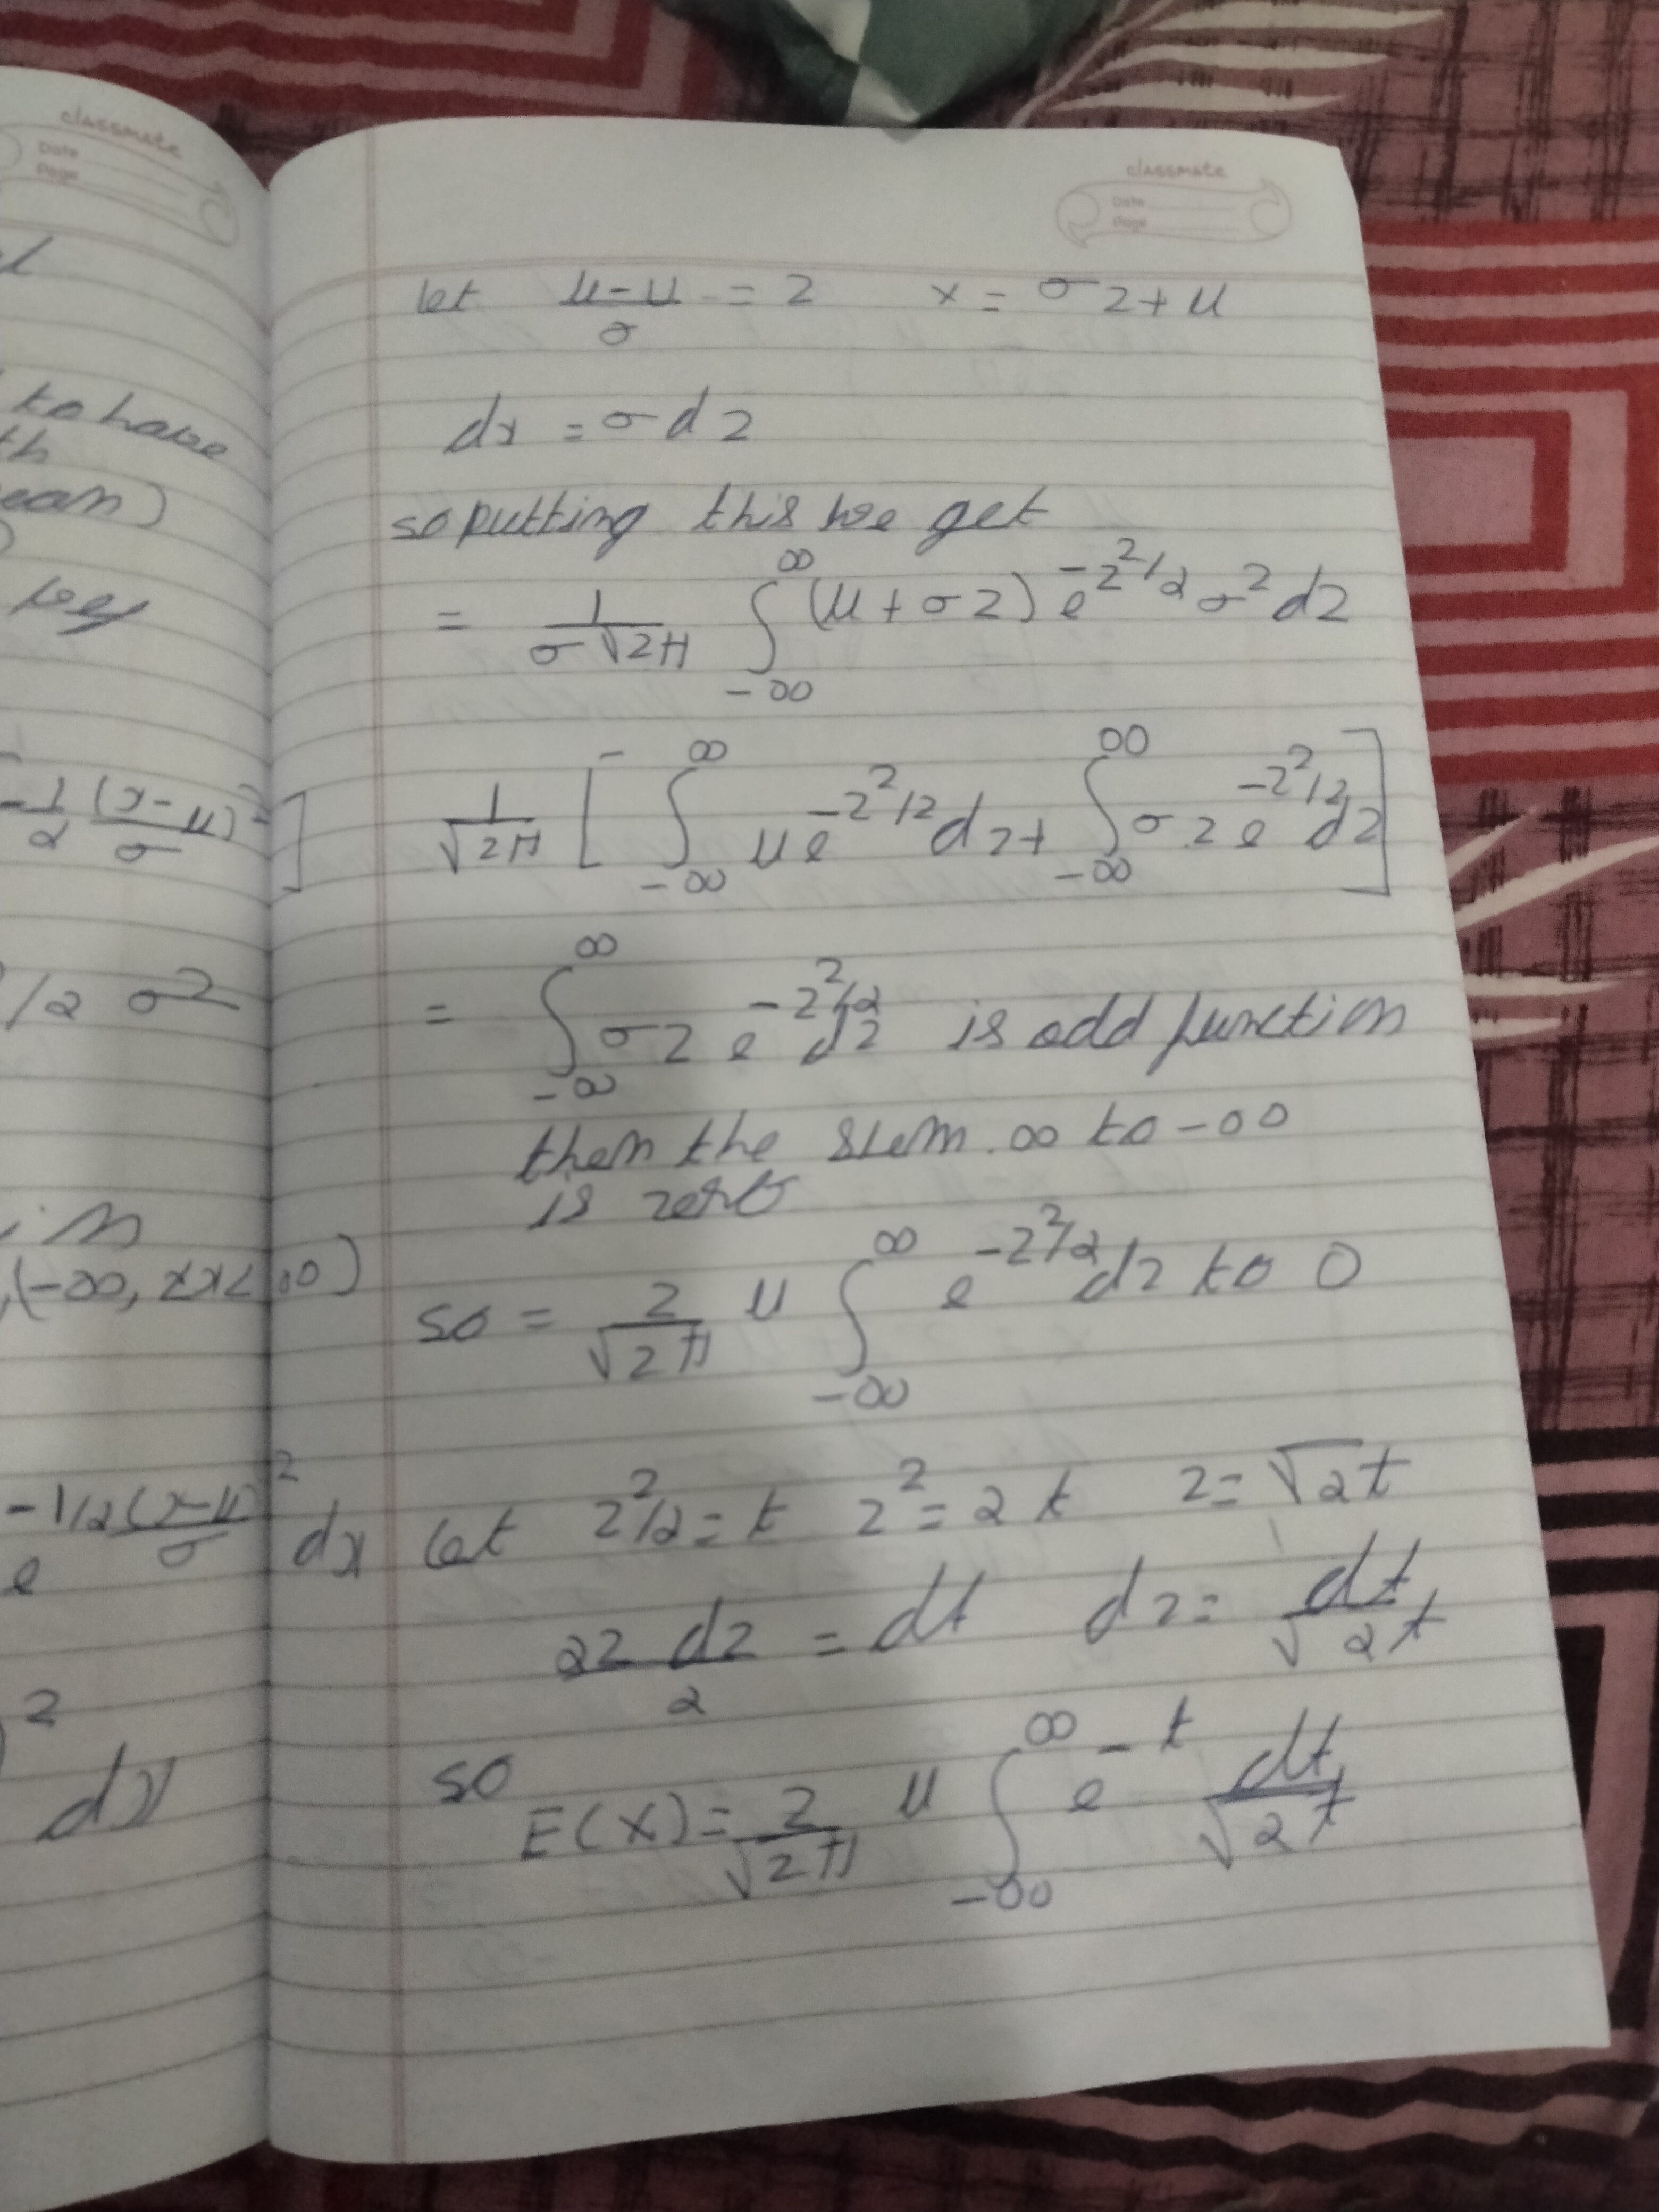 classmate
Date
Page
to have
th
ean)
-1/2 (x-μ)²/σ ]
/2 σ²
in
(-∞, <x<∞)
e^-1/2(x-μ)²/σ dx
2
dx
classmate
Date
Page
let (μ-μ)/σ = z x = σz+μ
dx = σdz
so putting this we get
= 1/(σ√2π) ∫_-∞^∞ (μ+σz) e^-z²/2 σ² dz
1/√2π [ ∫_-∞^∞ μe^-z²/2 dz + ∫_-∞^∞ σz e^-z²/2 dz ]
= ∫_-∞^∞ σz e^-z²/2 dz is odd function
then the sum ∞ to -∞
is zero
so = 2/√2π μ ∫_-∞^∞ e^-z²/2 dz to 0
let z²/2 = t z² = 2t z = √2t
2z dz/2 = dt dz = dt/√2t
so
E(X) = 2/√2π μ ∫_-∞^∞ e^-t dt/√2t